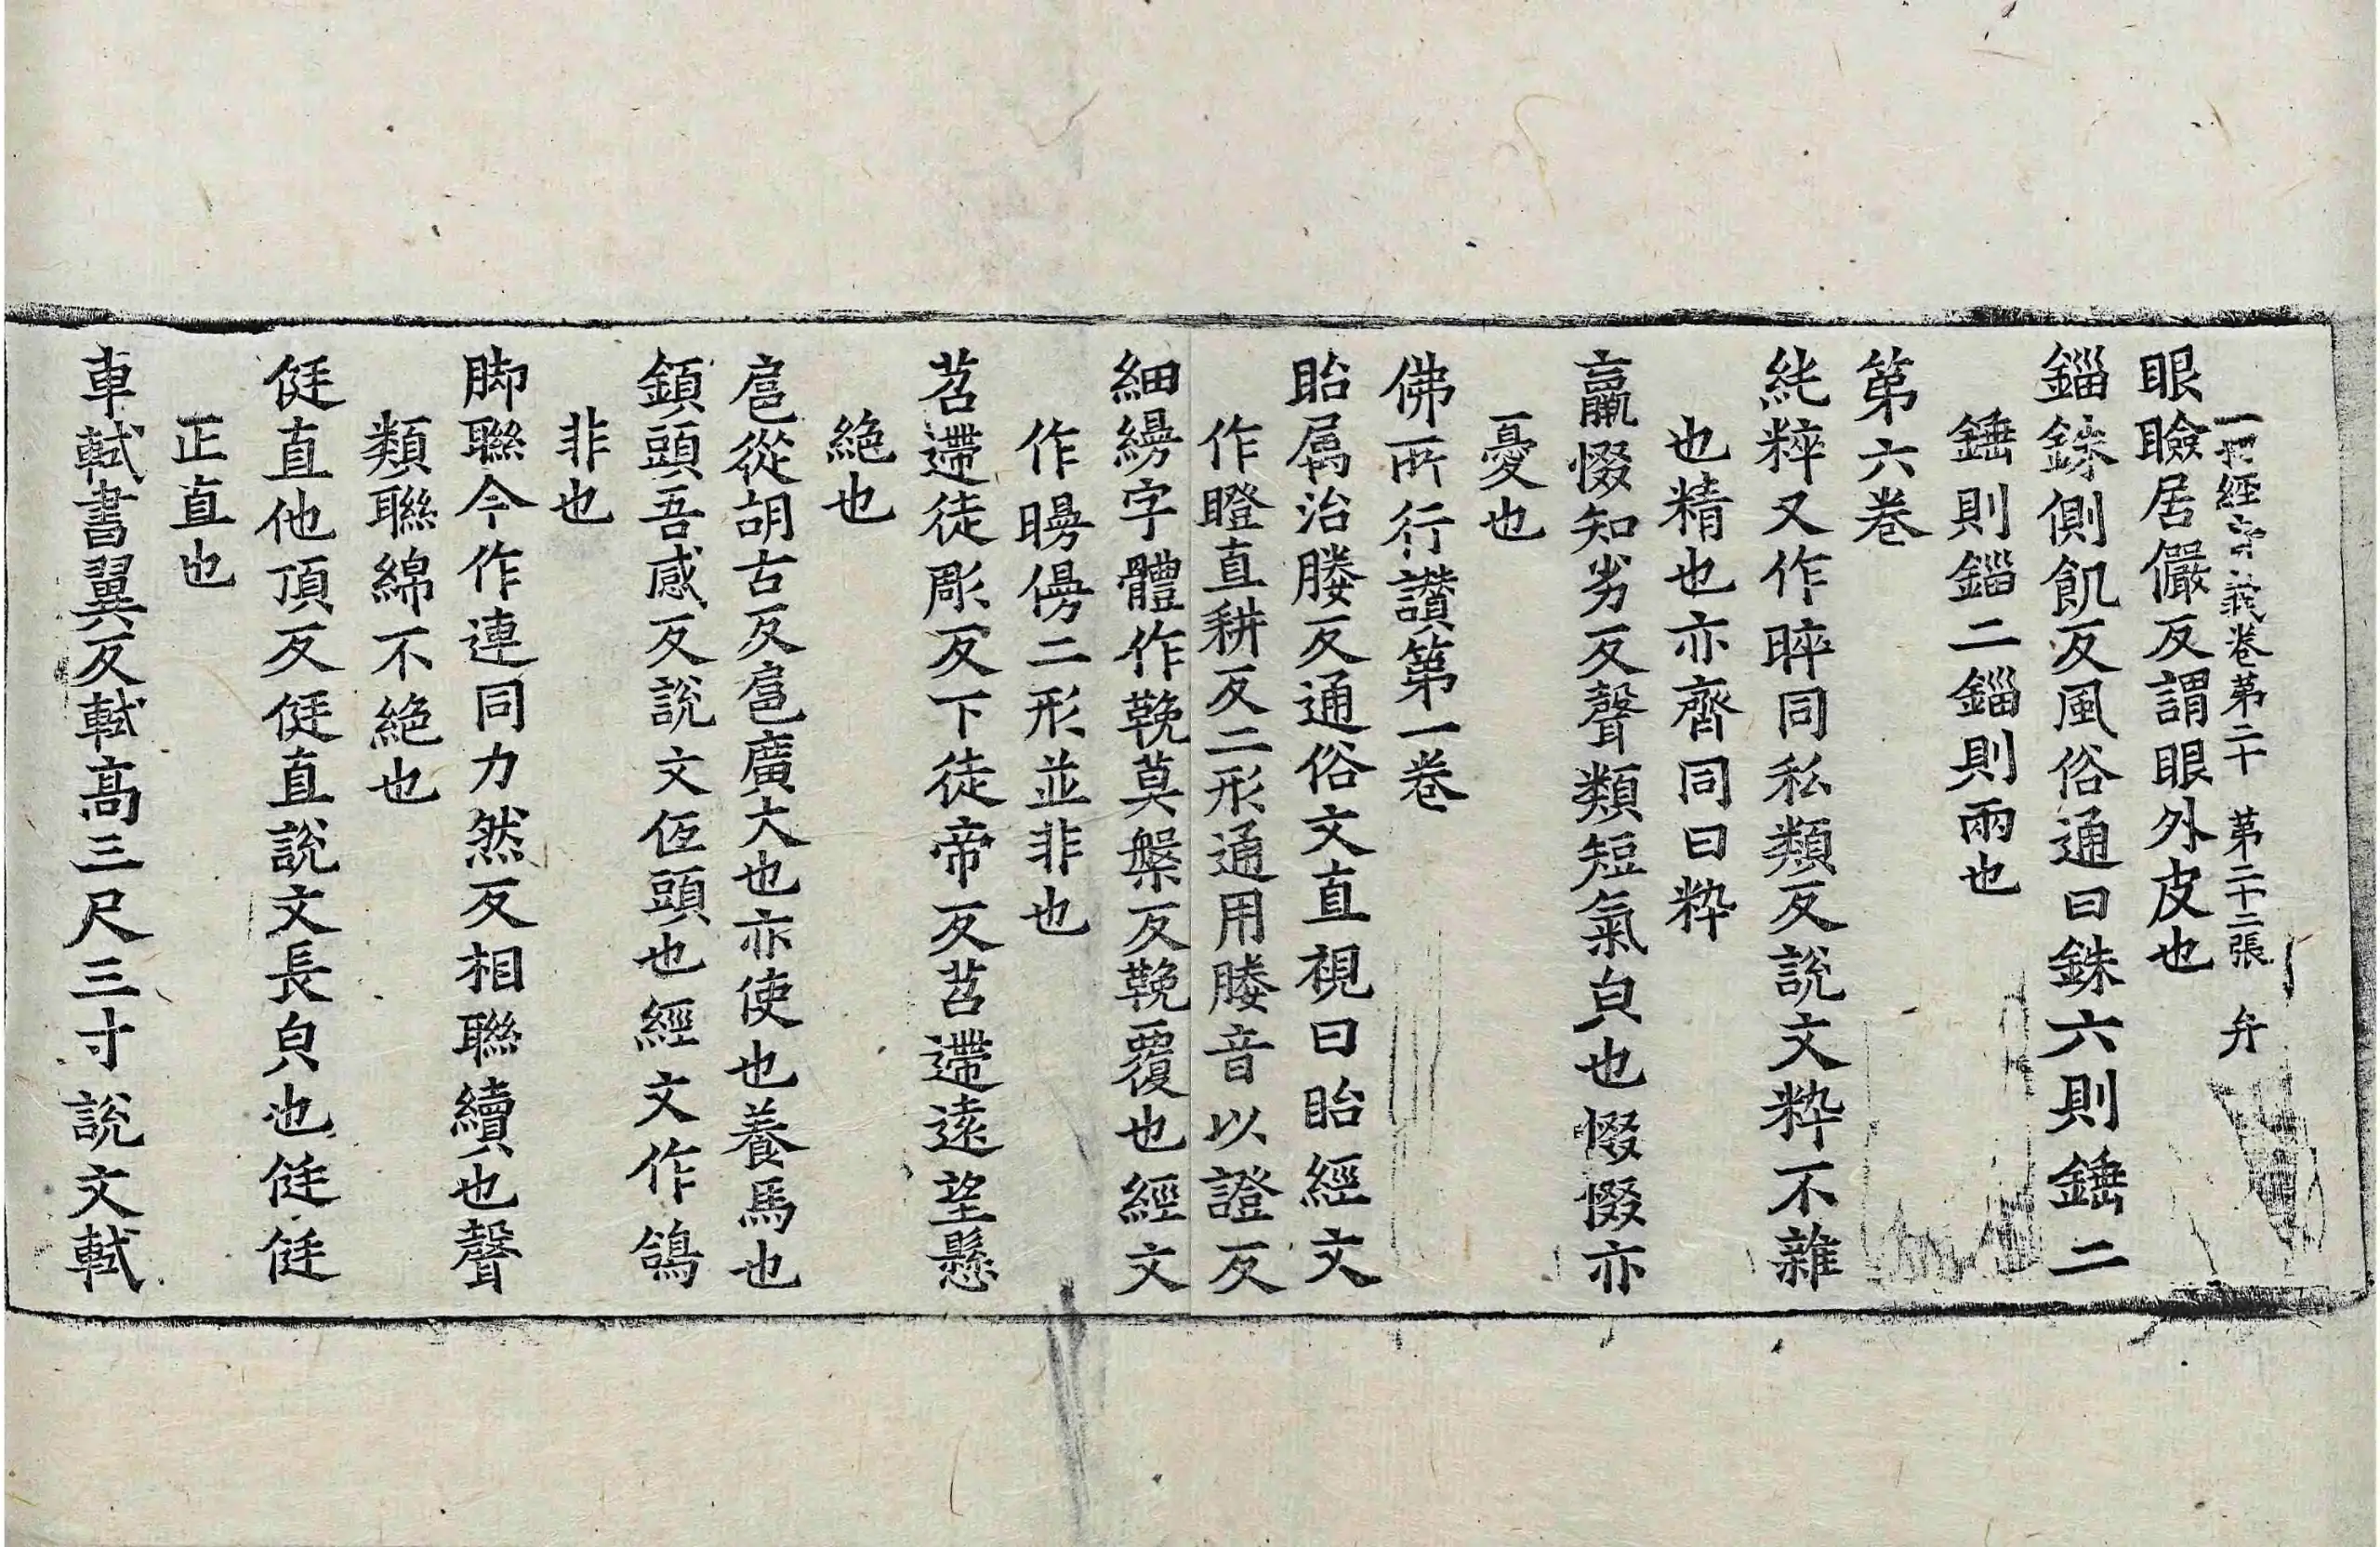 一切經音義卷第二十 第二十二張 弁
眼瞼居儼反謂眼外皮也
錙銖側飢反風俗通曰銖六則錘二
錘則錙二錙則兩也
第六卷
純粹又作睟同私類反說文粹不雜
也精也亦齊同曰粹
羸惙知劣反聲類短氣皃也惙惙亦
憂也
佛所行讃第一卷
眙属治㬺反通俗文直視曰眙經文
作瞪直耕反二形通用㬺音以證反
細縵字體作鞔莫槃反鞔覆也經文
作㬅僈二形並非也
苕遰徒彫反下徒帝反苕遰遠望懸
絶也
扈從胡古反扈廣大也亦使也養馬也
鎮頭吾感反說文低頭也經文作鴿
非也
脚聮今作連同力然反相聮續也聲
類聮綿不絶也
侹直他頂反侹直說文長皃也侹侹
正直也
車軾書翼反軾髙三尺三寸說文軾